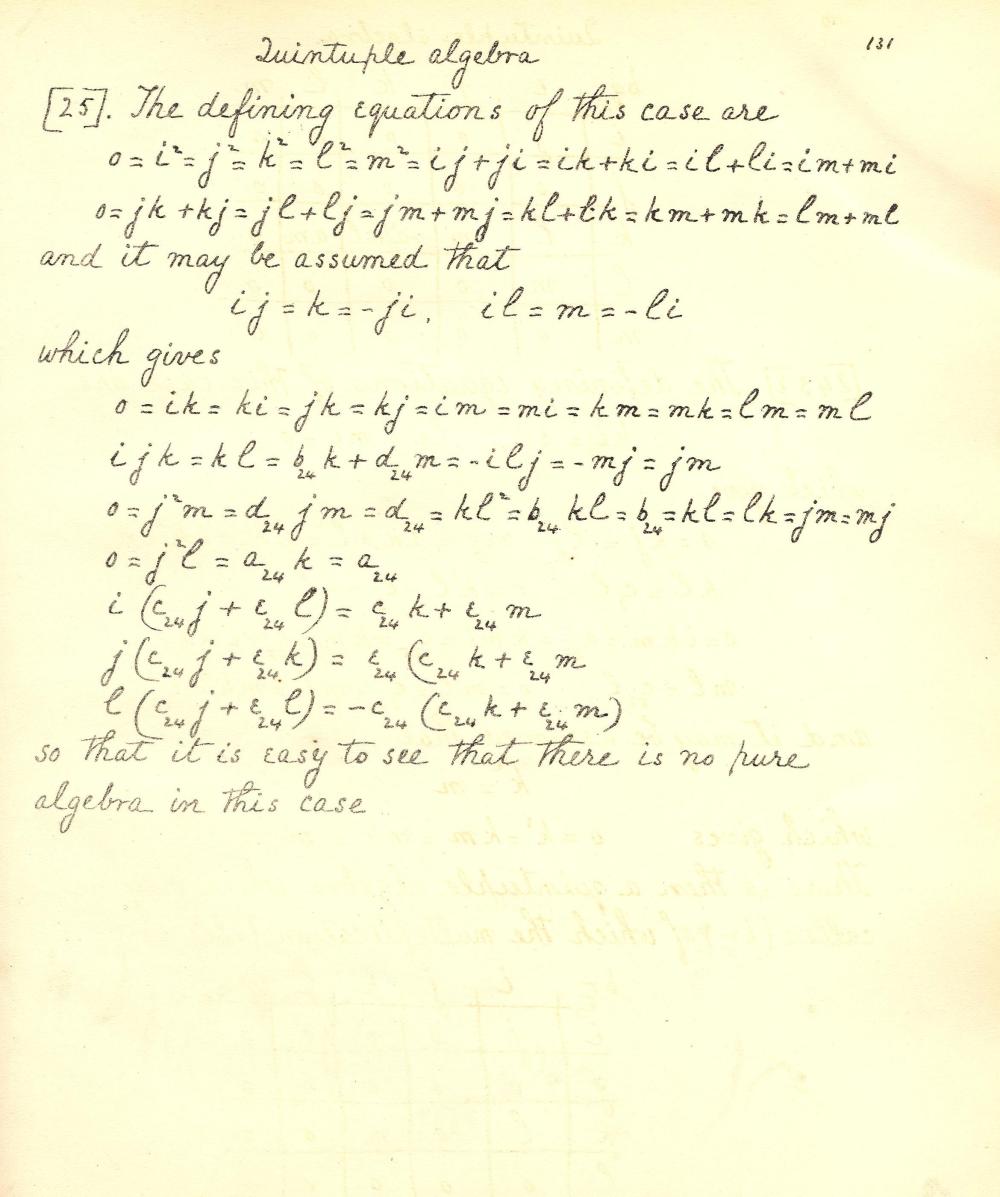 131
Quintuple algebra
[25]. The defining equations of this case are
0 = i² = j² = k² = l² = m² = ij + ji = ik + ki = il + li = im + mi
0 = jk + kj = jl + lj = jm + mj = kl + lk = km + mk = lm + ml
and it may be assumed that
ij = k = -ji, il = m = -li
which gives
0 = ik = ki = jk = kj = im = mi = km = mk = lm = ml
ijk = kl = b₂₄k + d₂₄m = -ilj = -mj = jm
0 = j²m = d₂₄jm = d₂₄ = kl² = b₂₄kl = b₂₄ = kl = lk = jm = mj
0 = j²l = a₂₄k = a₂₄
i (c₂₄j + e₂₄l) = c₂₄k + e₂₄m
j (c₂₄j + e₂₄k) = e₂₄ (c₂₄k + e₂₄m
l (c₂₄j + e₂₄l) = -c₂₄ (c₂₄k + e₂₄m)
so that it is easy to see that there is no pure
algebra in this case